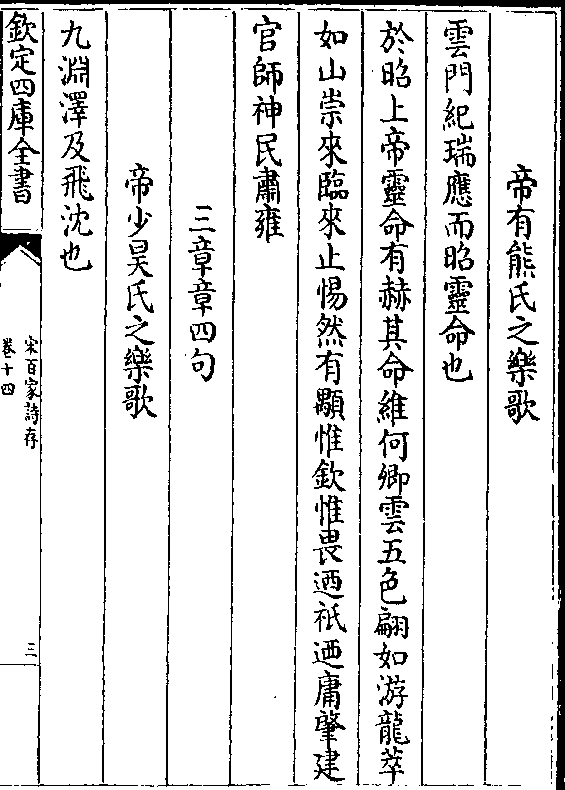 帝有熊氏之樂歌
雲門紀瑞應而昭靈命也
於昭上帝靈命有赫其命維何卿雲五色翩如游龍萃
如山崇來臨來止惕然有顒惟欽惟畏迺祇迺庸肇建
官師神民肅雍
三章章四句
帝少昊氏之樂歌
九淵澤及飛沈也
欽定四庫全書
宋百家詩存
卷十四
三